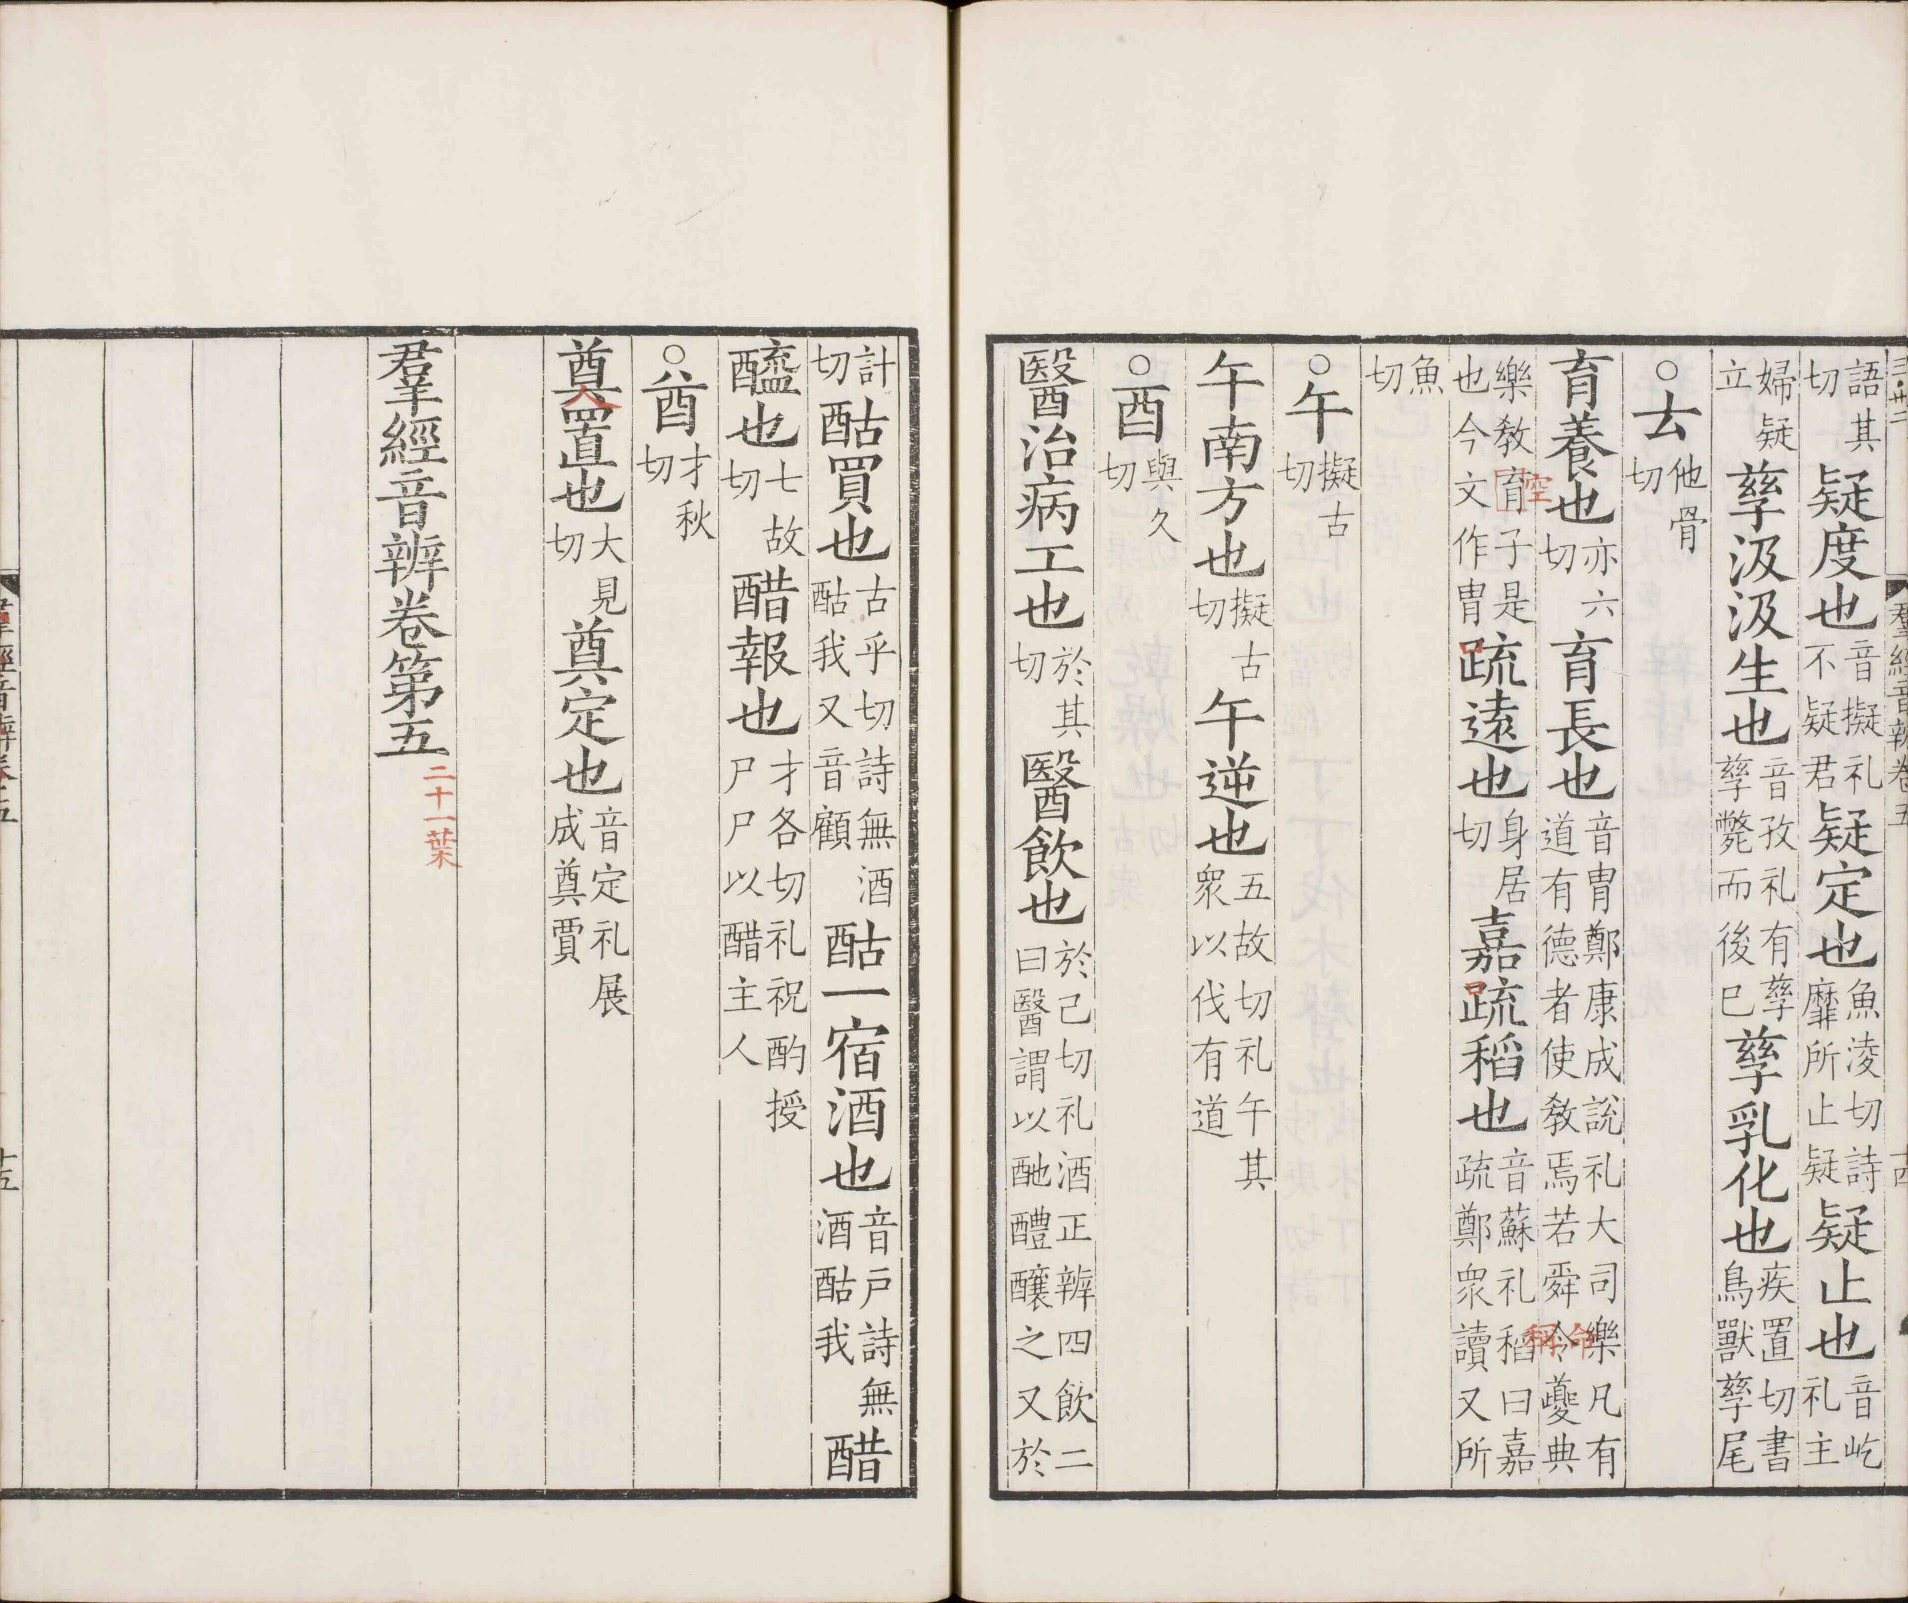 語其切疑度也音擬礼不疑君疑定也魚淩切詩靡所止疑疑止也音屹礼主
婦疑立孳汲汲生也音孜礼有孳孳斃而後巳孳乳化也疾置切書鳥獸孳尾
○𠫓他骨切
育養也亦六切育長也音胄鄭康成說礼大司樂凡有道有德者使教焉若舜令夔典
樂教育子是也今文作胄疏遠也身居切嘉疏稻也音蘇礼稻曰嘉疏鄭衆讀又所
魚切
○午擬古切
午南方也擬古切午逆也五故切礼午其衆以伐有道
○酉與久切
醫治病工也於其切醫飲也於己切礼酒正辨四飲二曰醫謂以酏醴釀之又於
計切酤買也古乎切詩無酒酤我又音顧酤一宿酒也音戸詩無酒酤我醋
醯也七故切醋報也才各切礼祝酌授尸尸以醋主人
○酋才秋切
奠置也大見切奠定也音定礼展成奠賈
羣經音辨卷第五
二十一葉
空
命
稱
口
口
人
羣經音辨卷五
十四
羣經音辨卷五
十五